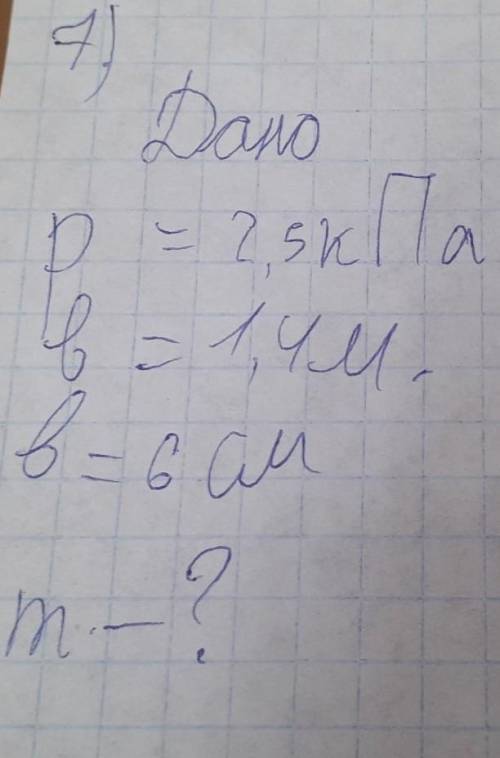 7)
Дано
p = 2,5 кПа
в = 1,4 м.
в = 6 см
m - ?